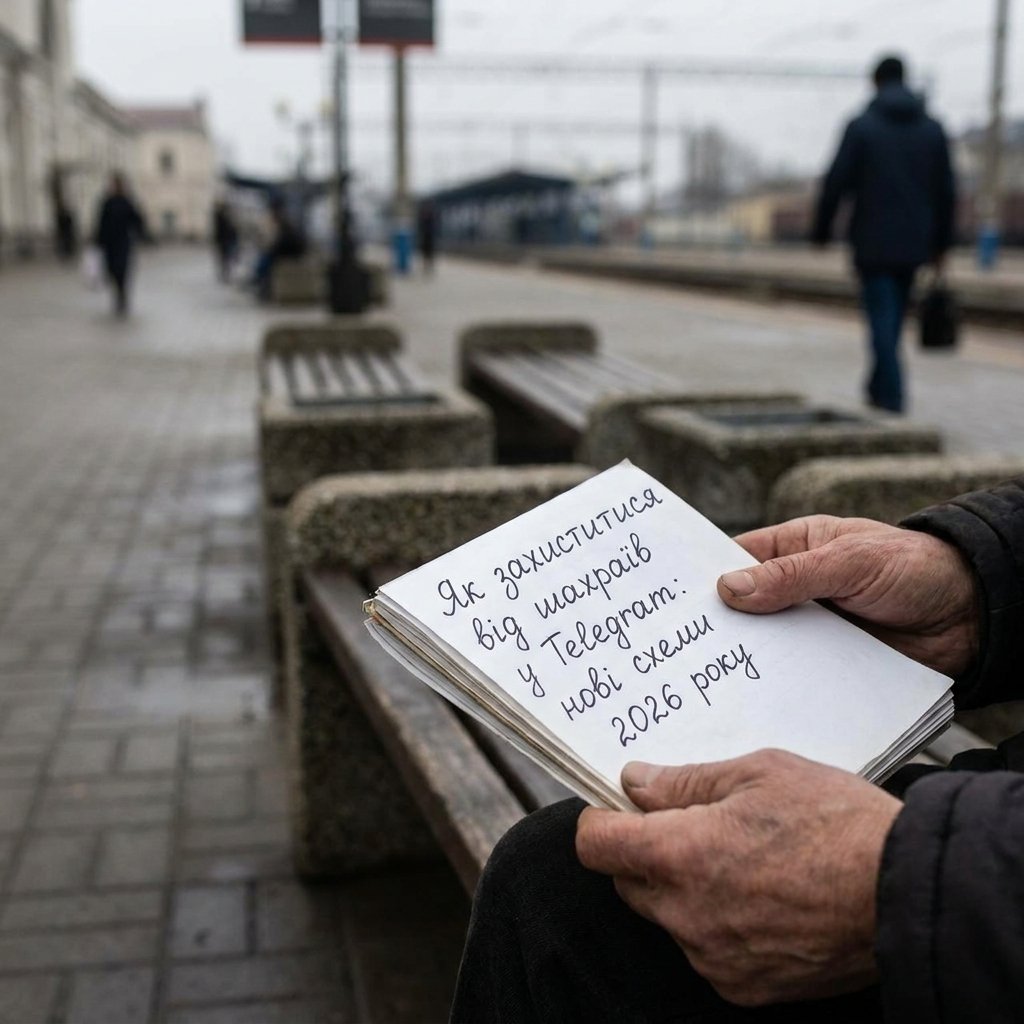 Як захиститися
від шахраїв
у Telegram:
нові схеми
2026 року